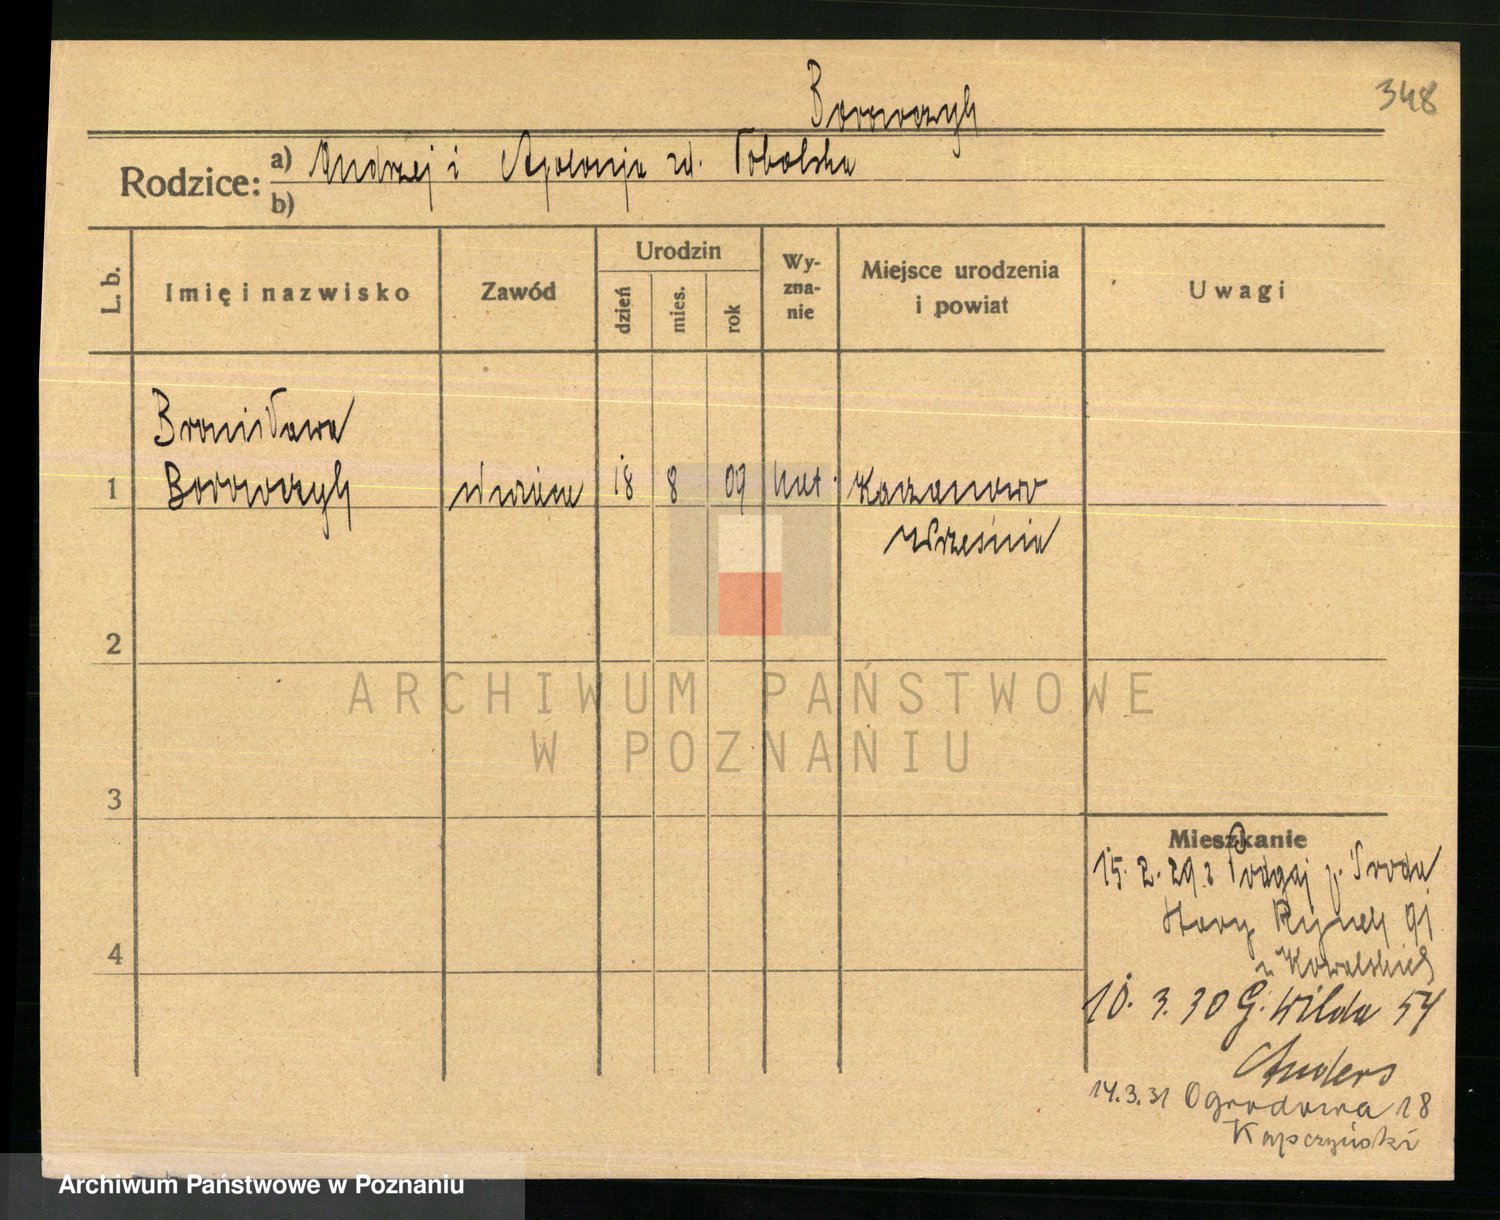 348
Borowczyk
Rodzice: a) Andrzej i Apolonja zd. Tobolska
b)
L. b.
Imię i nazwisko
Zawód
Urodzin
dzień
mies.
rok
Wy-
zna-
nie
Miejsce urodzenia
i powiat
Uwagi
Bronisława
1 Borowczyk służąca 18 8 09 kat. Kaczanowo
Września
2
ARCHIWUM PAŃSTWOWE
W POZNANIU
3
Mieszkanie
15. 2. 29 z Podgaj p. Środa
Stary Rynek 91
4
u Kowalskich
10. 3. 30 G. Wilda 54
Anders
14.3.31 Ogrodowa 18
Kapczyński
Archiwum Państwowe w Poznaniu